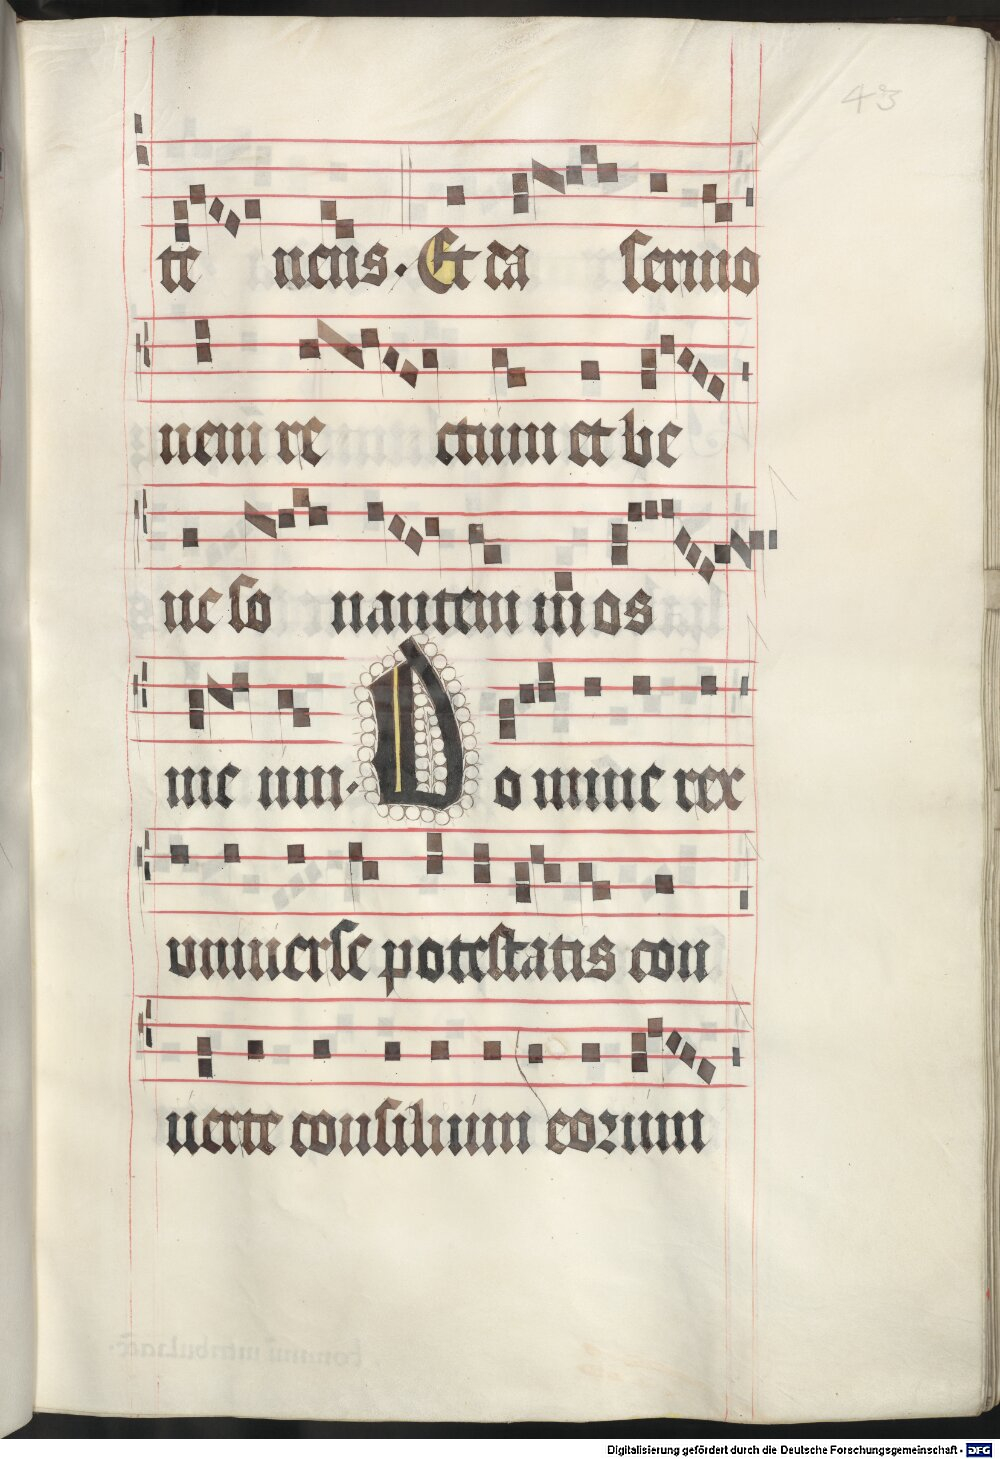 43
te nens. Et da sermo
nem re ctum et be
ne so nantem in os
me um. Domine rex
vniuerse potestatis con
uerte consilium eorum
Digitalisierung gefördert durch die Deutsche Forschungsgemeinschaft - DFG